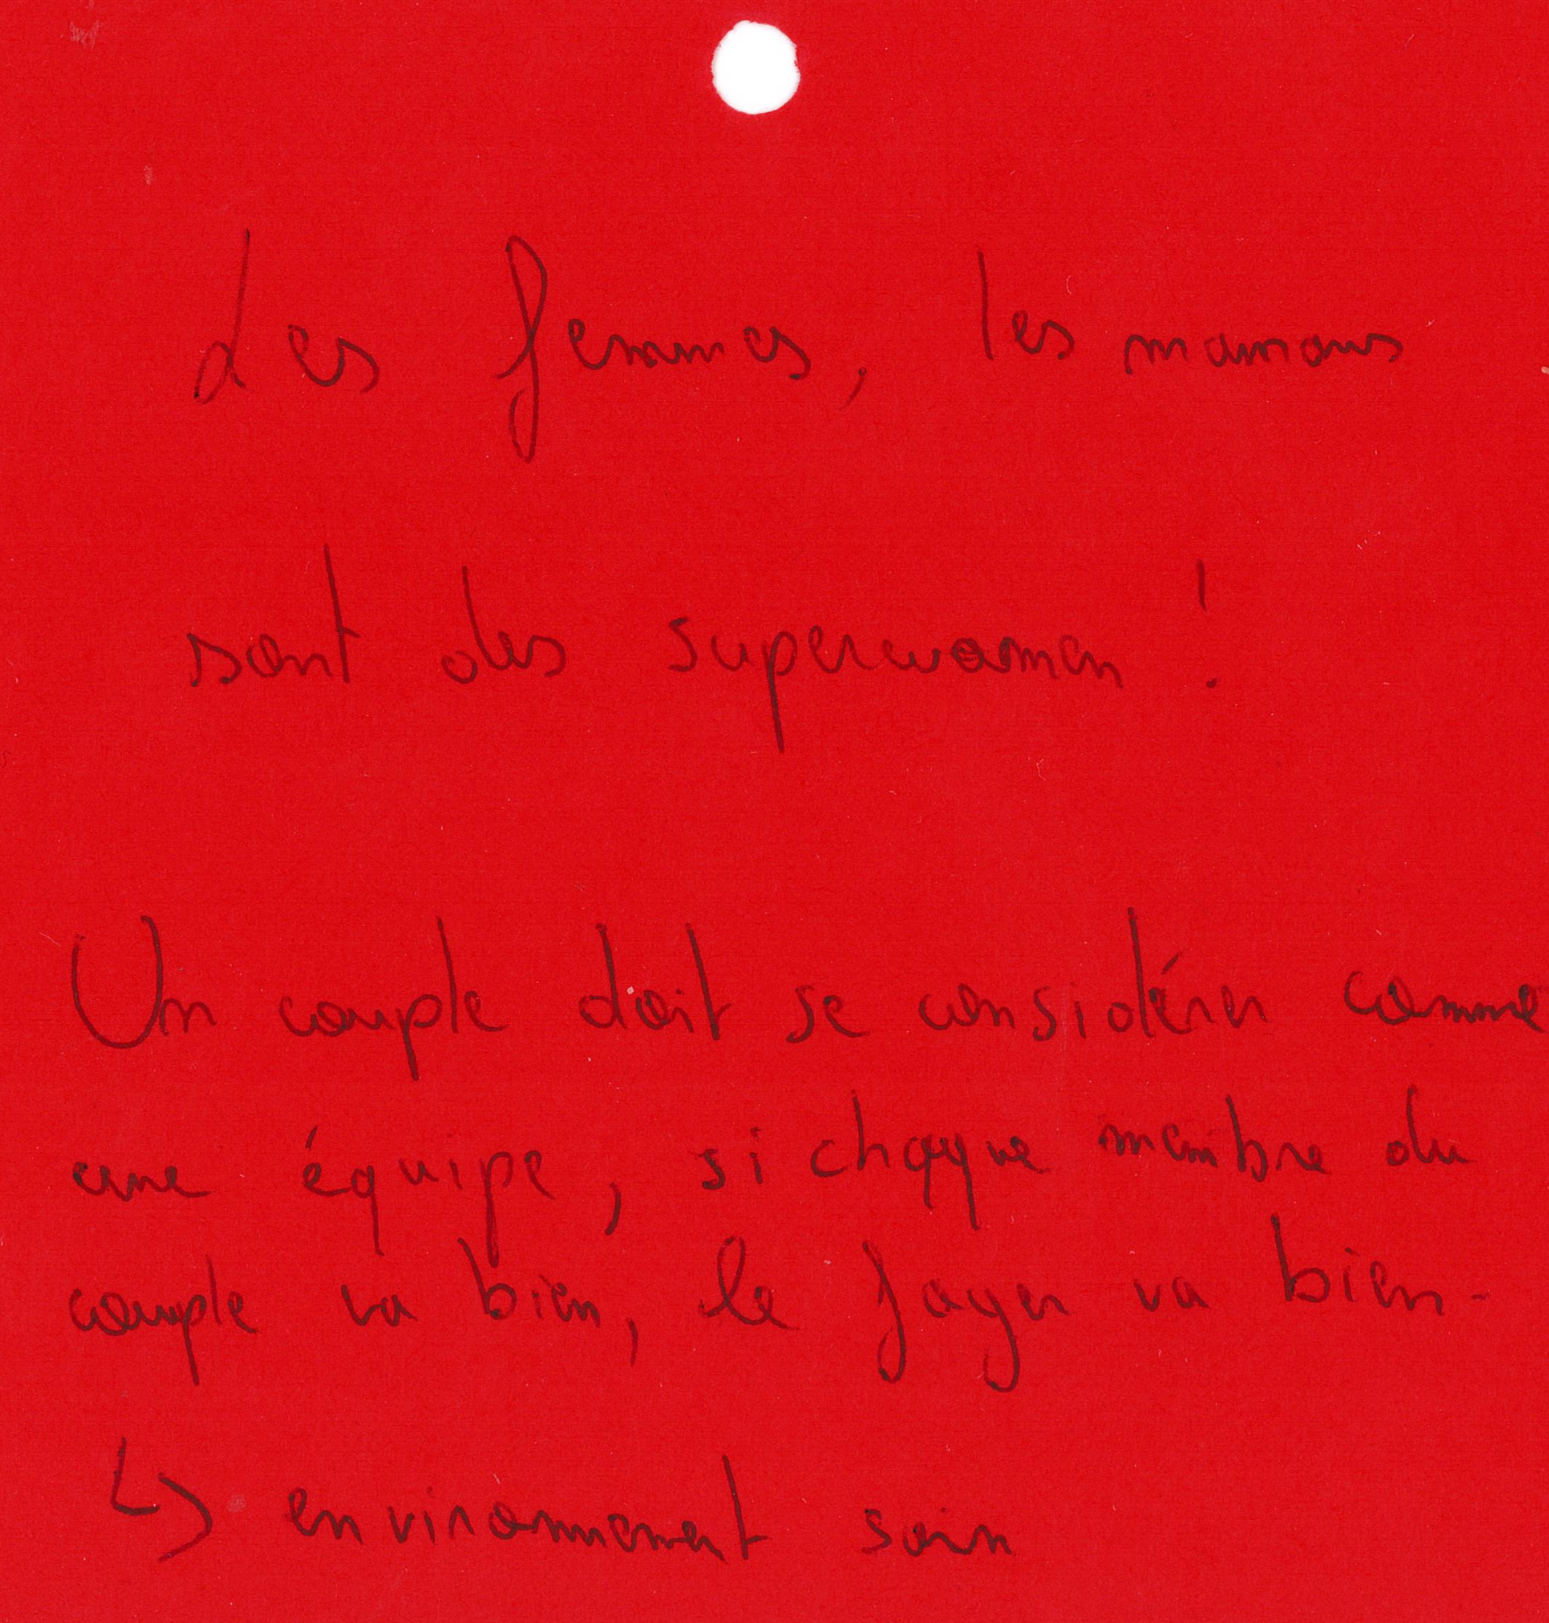 Les femmes, les mamans
sont des superwomen !
Un couple doit se considérer comme
une équipe, si chaque membre du
couple va bien, le foyer va bien.
↳ environnement sain